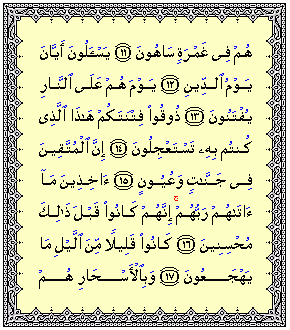 هُمْ فِى غَمْرَةٍ سَاهُونَ ۝١١ يَسْـَٔلُونَ أَيَّانَ
يَوْمُ ٱلدِّينِ ۝١٢ يَوْمَ هُمْ عَلَى ٱلنَّارِ
يُفْتَنُونَ ۝١٣ ذُوقُوا۟ فِتْنَتَكُمْ هَٰذَا ٱلَّذِى
كُنتُم بِهِۦ تَسْتَعْجِلُونَ ۝١٤ إِنَّ ٱلْمُتَّقِينَ
فِى جَنَّٰتٍ وَعُيُونٍ ۝١٥ ءَاخِذِينَ مَآ
ءَاتَىٰهُمْ رَبُّهُمْ ۚ إِنَّهُمْ كَانُوا۟ قَبْلَ ذَٰلِكَ
مُحْسِنِينَ ۝١٦ كَانُوا۟ قَلِيلًا مِّنَ ٱلَّيْلِ مَا
يَهْجَعُونَ ۝١٧ وَبِٱلْأَسْحَارِ هُمْ